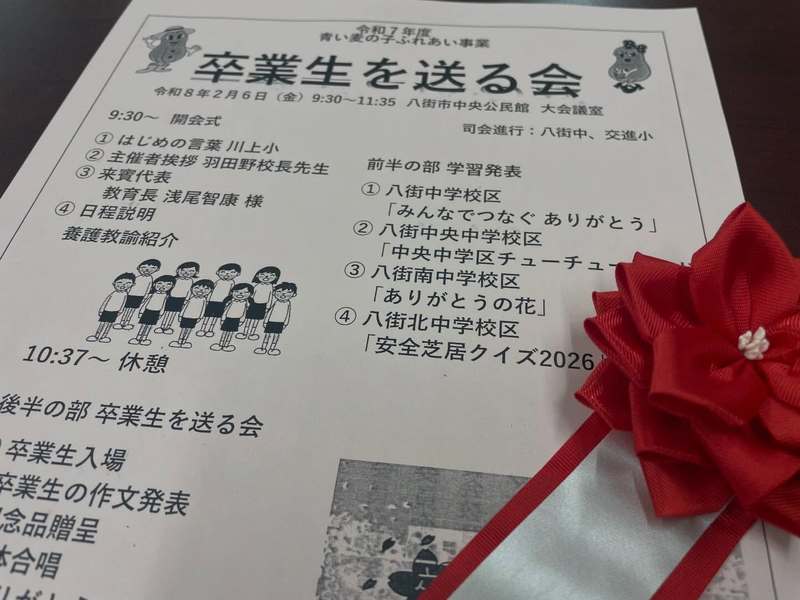 令和７年度
青い麦の子ふれあい事業
卒業生を送る会
令和８年２月６日（金）9:30～11:35 八街市中央公民館 大会議室
司会進行：八街中、交進小
9:30～ 開会式
① はじめの言葉 川上小
② 主催者挨拶 羽田野校長先生
③ 来賓代表
教育長 浅尾智康 様
④ 日程説明
養護教諭紹介
10:37～ 休憩
前半の部 学習発表
① 八街中学校区
「みんなでつなぐ ありがとう」
② 八街中央中学校区
「中央中学区チューチュー
③ 八街南中学校区
「ありがとうの花」
④ 八街北中学校区
「安全芝居クイズ2026」
後半の部 卒業生を送る会
卒業生入場
卒業生の作文発表
念品贈呈
体合唱